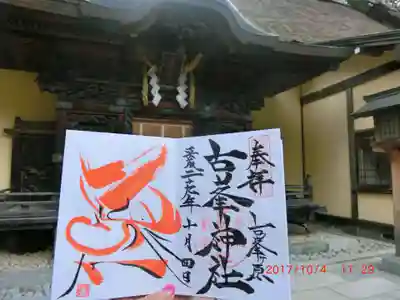 奉拝
古峯原
古峯神社
平成二十九年十月四日
2017/10/4 11:29